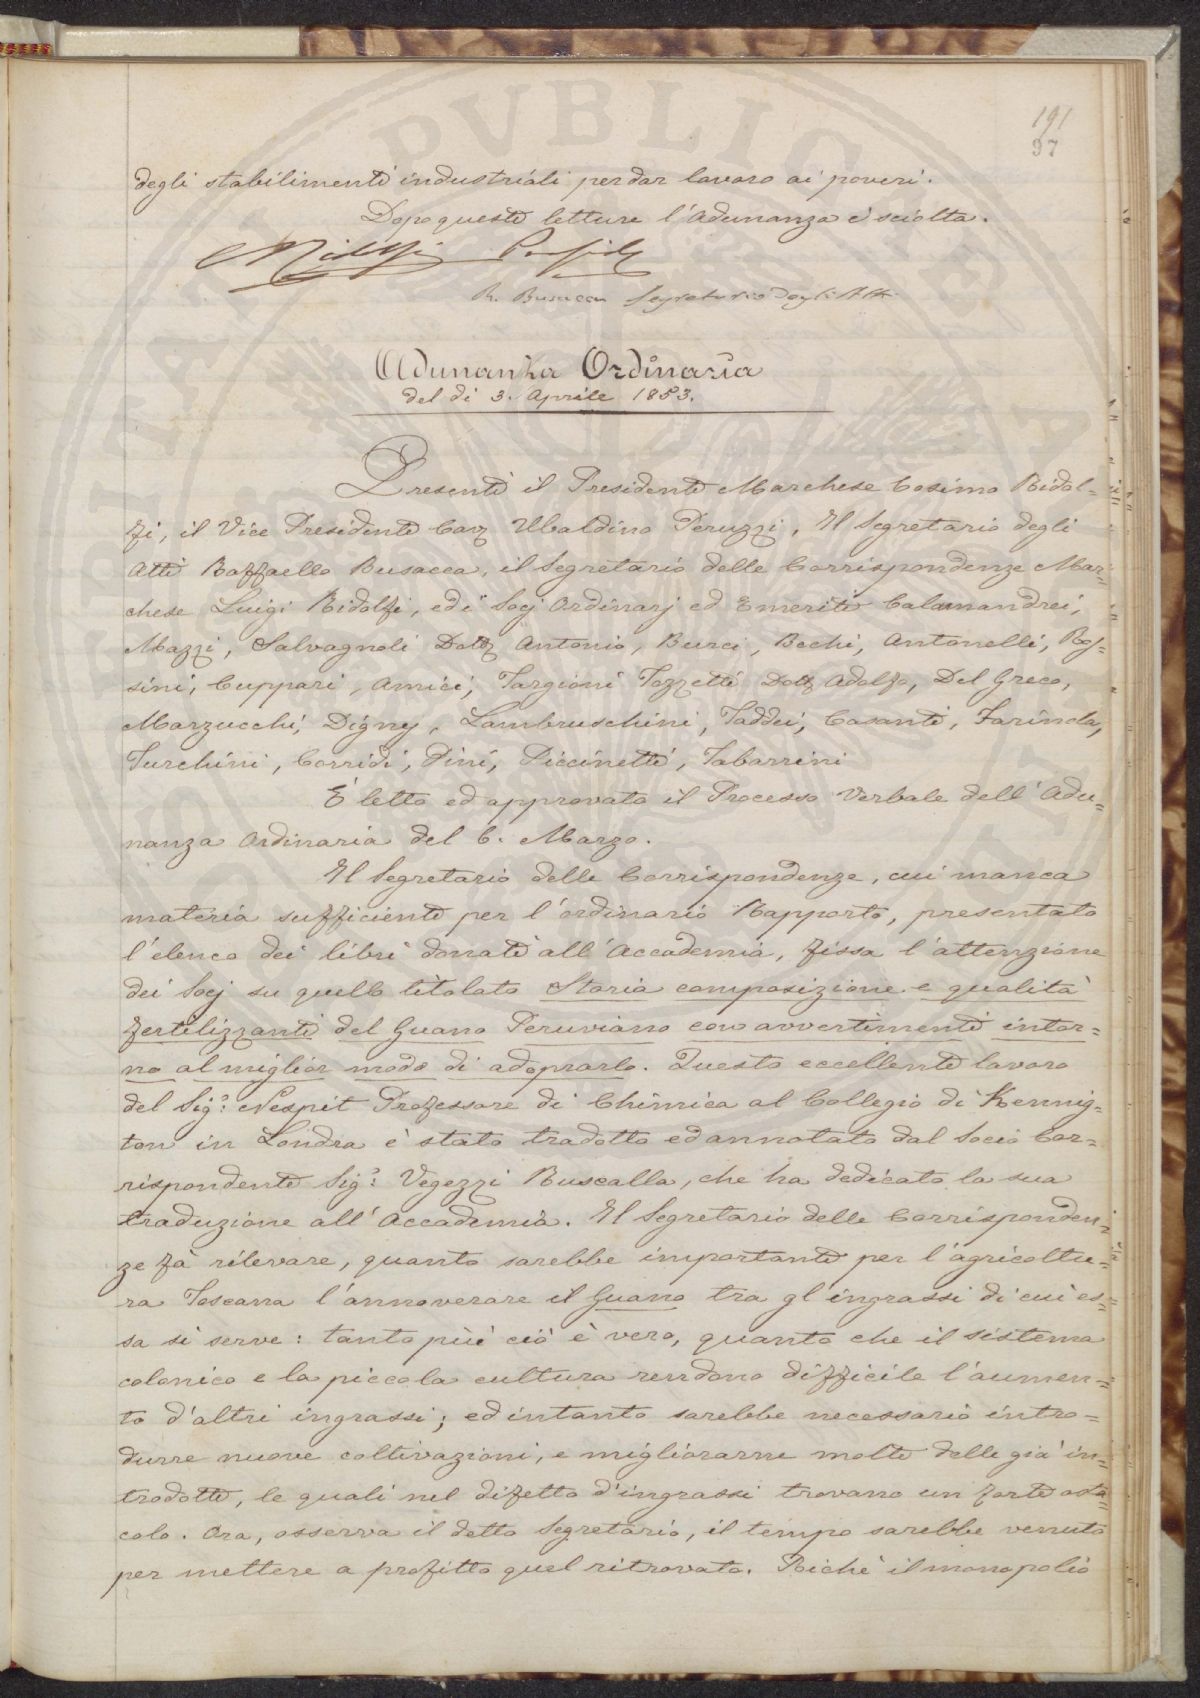 191
97
degli stabilimenti industriali per dar lavoro ai poveri.
Dopo queste letture l'Adunanza è sciolta.
C Ridolfi Presid.
R. Busacca Segretario degli Atti
Adunanza Ordinaria
del dì 3. Aprile 1853.
Presenti il Presidente Marchese Cosimo Ridol=
fi, il Vice Presidente Cav Ubaldino Peruzzi, Il Segretario degli
Atti Raffaello Busacca, il Segretario delle Corrispondenze Mar=
chese Luigi Ridolfi, ed i Socj Ordinarj ed Emeriti Calamandrei,
Mazzi, Salvagnoli Dott Antonio, Burci, Bechi, Antonelli, Ros=
sini, Cuppari, Amici, Targioni Tozzetti Dott Adolfo, Del Greco,
Marzucchi, Digny, Lambruschini, Taddei, Casanti, Farinola,
Turchini, Corridi, Pini, Piccinetti, Tabarrini
È letto ed approvato il Processo Verbale dell'Adu=
nanza Ordinaria del 6. Marzo.
Il Segretario delle Corrispondenze, cui manca
materia sufficiente per l'ordinario Rapporto, presentato
l'elenco dei libri donati all'Accademia, fissa l'attenzione
dei Socj su quello titolato Storia composizione e qualità
fertilizzanti del Guano Peruviano con avvertimenti intor=
no al miglior modo di adoprarlo. Questo eccellente lavoro
del Sig.r Nespit Professore di Chimica al Collegio di Kennig=
ton in Londra è stato tradotto ed annotato dal Socio Cor=
rispondente Sig.r Vegezzi Ruscalla, che ha dedicato la sua
traduzione all'Accademia. Il Segretario delle Corrisponden=
ze fà rilevare, quanto sarebbe importante per l'agricoltu=
ra Toscana l'annoverare il Guano tra gl'ingrassi di cui es=
sa si serve: tanto più ciò è vero, quanto che il sistema
colonico e la piccola cultura rendono difficile l'aumen=
to d'altri ingrassi; ed intanto sarebbe necessario intro=
durre nuove coltivazioni, e migliorarne molte delle già in=
trodotte, le quali nel difetto d'ingrassi trovano un forte osta=
colo. Ora, osserva il detto Segretario, il tempo sarebbe venuto
per mettere a profitto quel ritrovato. Poichè il monopolio